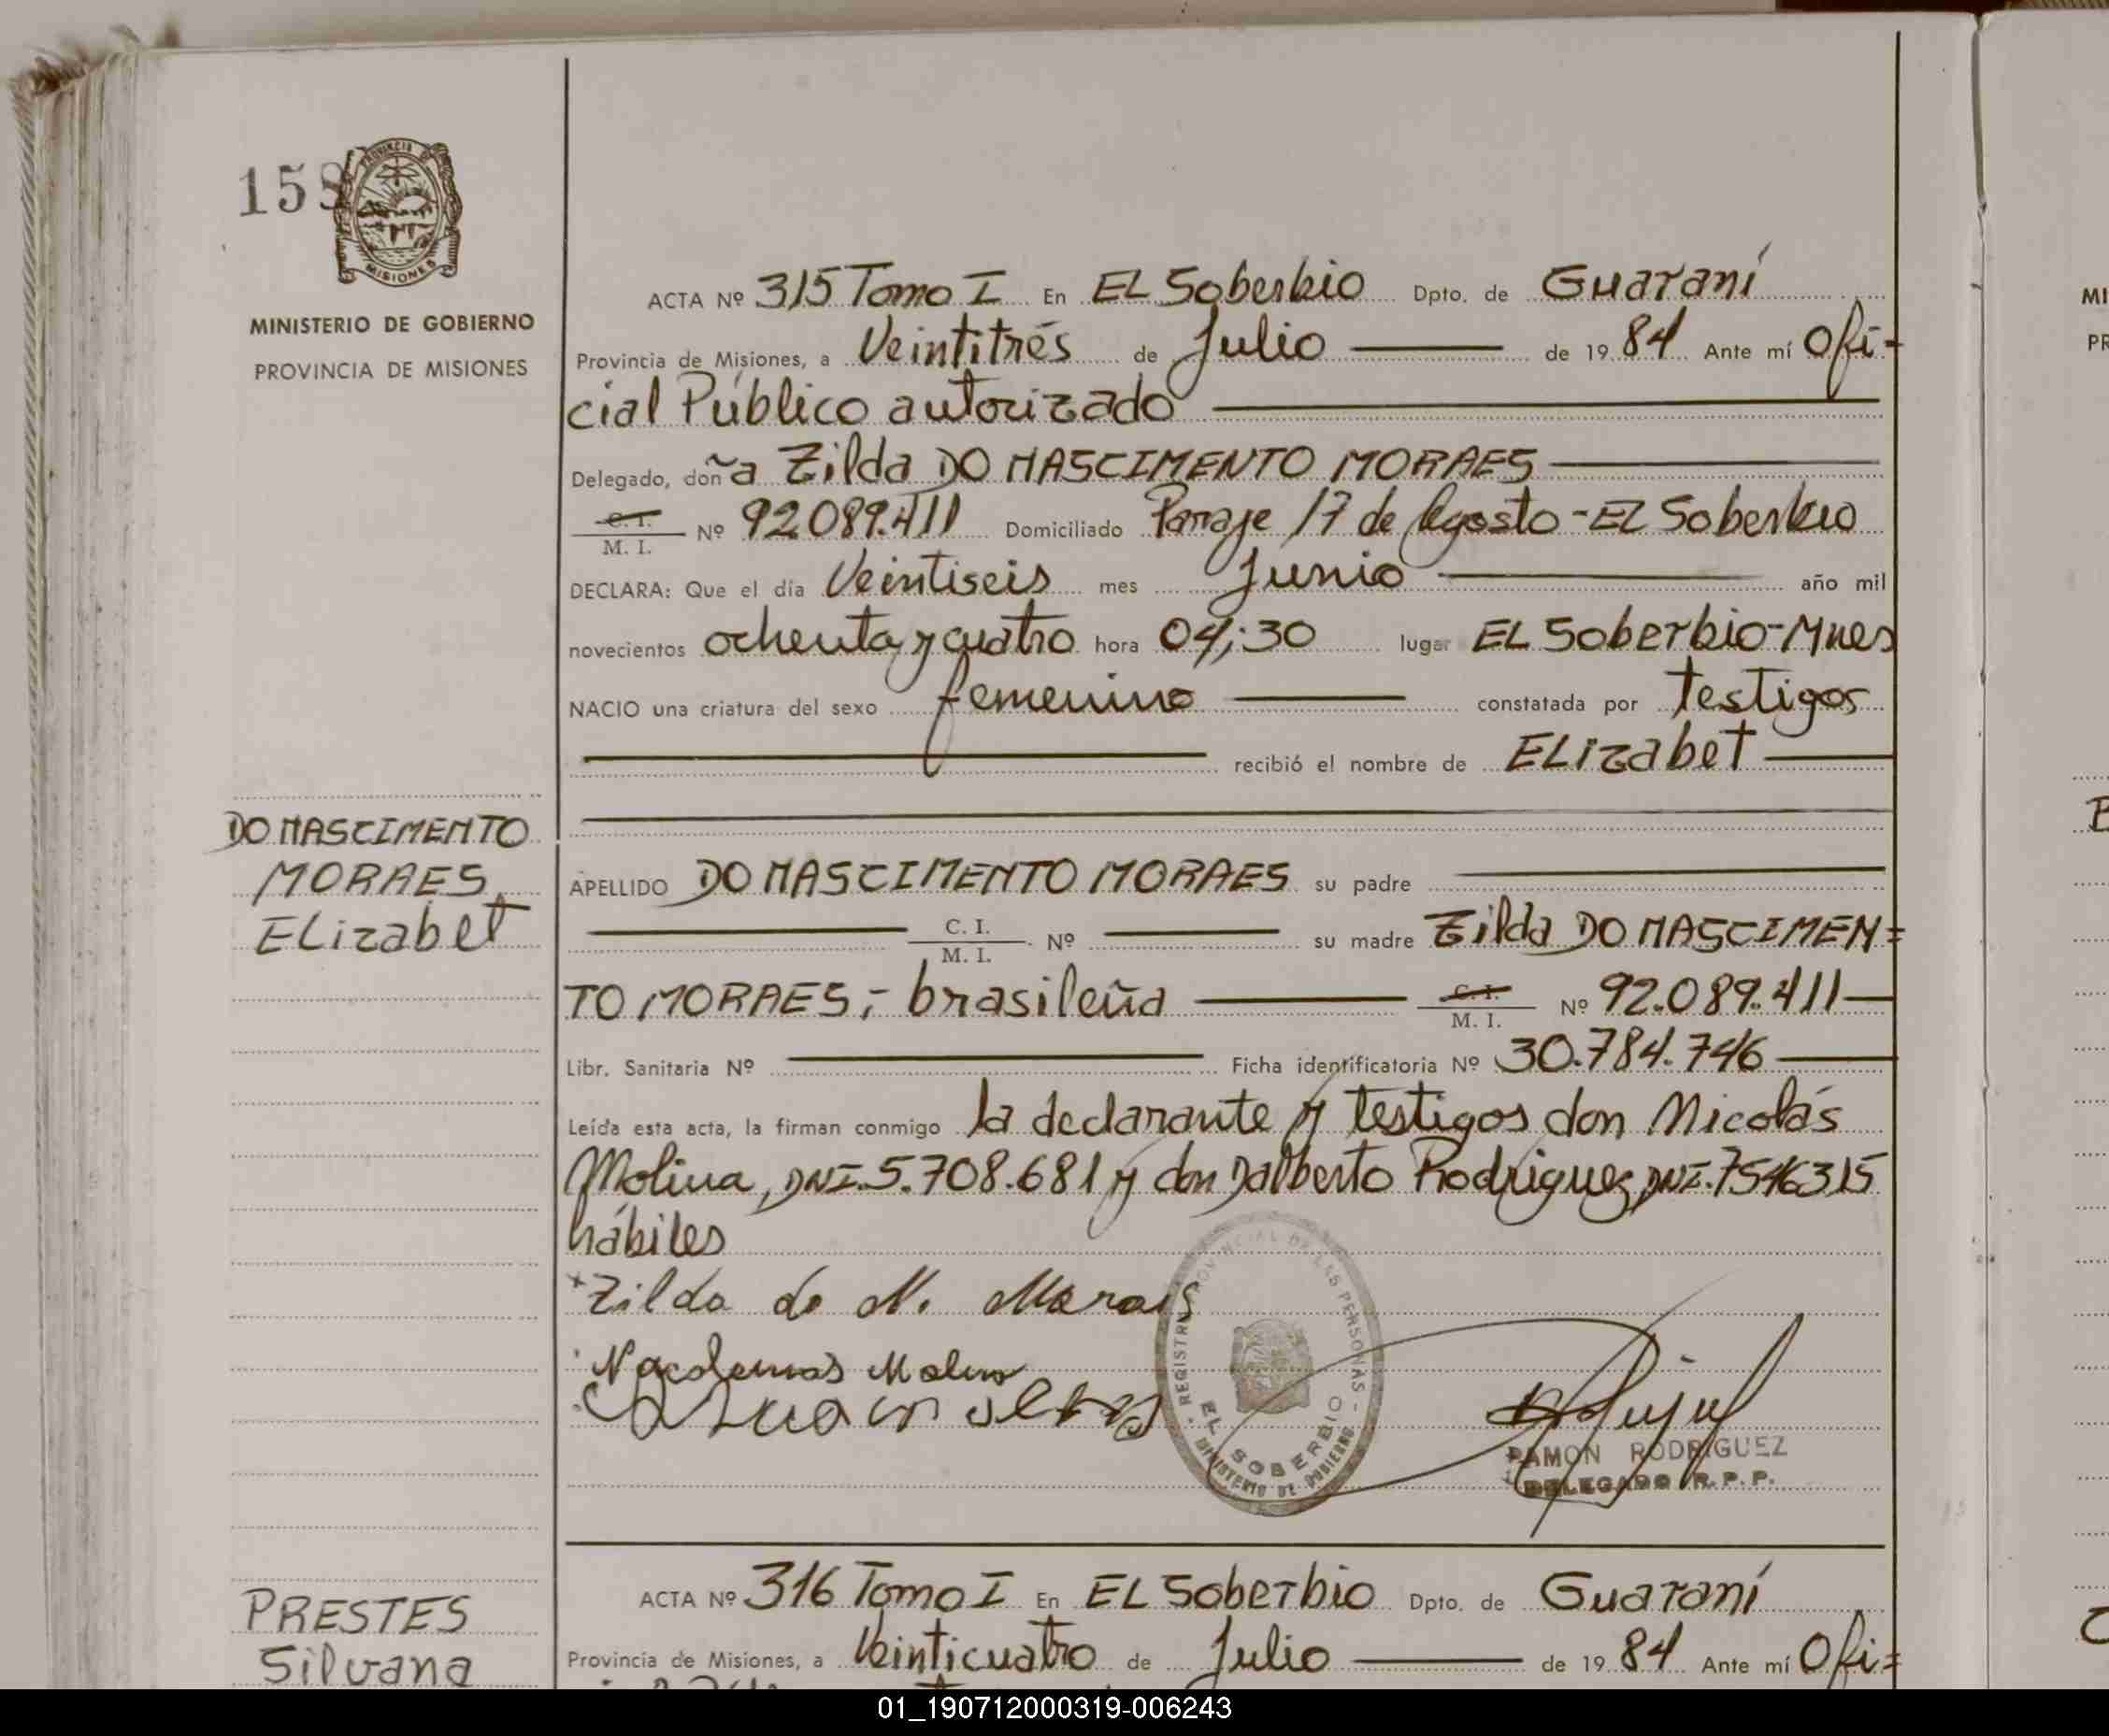 158
PROVINCIA DE
MISIONES
MINISTERIO DE GOBIERNO
PROVINCIA DE MISIONES
ACTA Nº 315 Tomo I En EL Soberbio Dpto. de Guaraní
Provincia de Misiones, a Veintitrés de Julio de 19 84 Ante mí Ofi-
cial Público autorizado
Delegado, doña Zilda DO NASCIMENTO MORAES
C. I.
M. I. Nº 92.089.411 Domiciliado Paraje 17 de Agosto - EL Soberbio
DECLARA: Que el día Veintiseis mes Junio año mil
novecientos ochenta y cuatro hora 04;30 lugar EL Soberbio-Mnes
NACIO una criatura del sexo femenino constatada por testigos
recibió el nombre de ELizabet
DO NASCIMENTO
MORAES
ELizabet
APELLIDO DO NASCIMENTO MORAES su padre
C. I.
M. I. Nº su madre Zilda DO NASCIMEN=
TO MORAES,- brasileña C. I.
M. I. Nº 92.089.411
Libr. Sanitaria Nº Ficha identificatoria Nº 30.784.746
Leída esta acta, la firman conmigo la declarante y testigos don Nicolás
Molina, DNI.5.708.681 y don Dalberto Rodriguez, DNI.7546315
hábiles
Zilda do N. Morais
Molino
REGISTRO PROVINCIAL DE LAS PERSONAS
EL SOBERBIO
MINISTERIO DE GOBIERNO
RAMON RODRIGUEZ
DELEGADO R. P. P.
PRESTES
Silvana
ACTA Nº 316 Tomo I En EL Soberbio Dpto. de Guaraní
Provincia de Misiones, a Veinticuatro de Julio de 19 84 Ante mí Ofi=
MI
PR
01_190712000319-006243